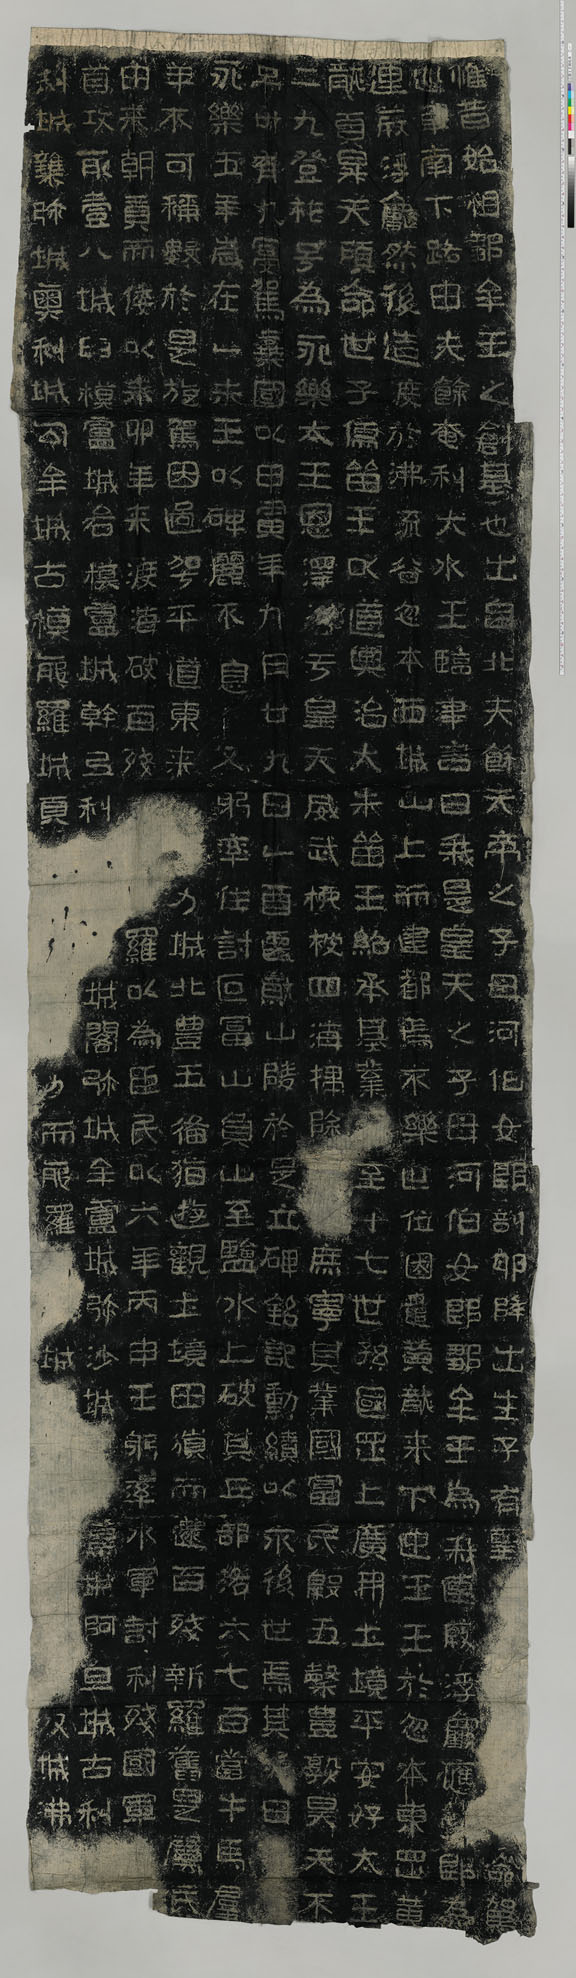 惟昔始祖鄒牟王之創基也出自北夫餘天帝之子母河伯女郎剖卵降出生子有聖命駕
巡車南下路由夫餘奄利大水王臨津言曰我是皇天之子母河伯女郎鄒牟王為我連葭浮龜應即為
連葭浮龜然後造渡於沸流谷忽本西城山上而建都焉不樂世位因遣黃龍來下迎王王於忽本東罡黃
龍首昇天顧命世子儒留王以道興治大朱留王紹承基業至十七世孫國罡上廣開土境平安好太王
二九登祚号為永樂太王恩澤于皇天威武橫被四海掃除庶寧其業國富民殷五穀豐熟昊天不
弔卅有九寔駕棄國以甲寅年九月廿九日乙酉遷就山陵於是立碑銘記勳績以永後世焉其曰
永樂五年歲在乙未王以碑麗不息又躬率住討叵富山負山至鹽水上破其丘部洛六七百當牛馬羣
羊不可稱數於是旋駕因過襄平道東来力城北豊五備猶遊觀土境田獵而還百殘新羅舊是屬民
由来朝貢而倭以耒卯年来渡海破百殘羅以為臣民以六年丙申王躬率水軍討利殘國軍
首攻取壹八城臼模盧城各模盧城幹弓利城閣弥城牟盧城弥沙城蔦城阿旦城古利
利城雜弥城奧利城勾牟城古模耶羅城頁而耶羅城城弗